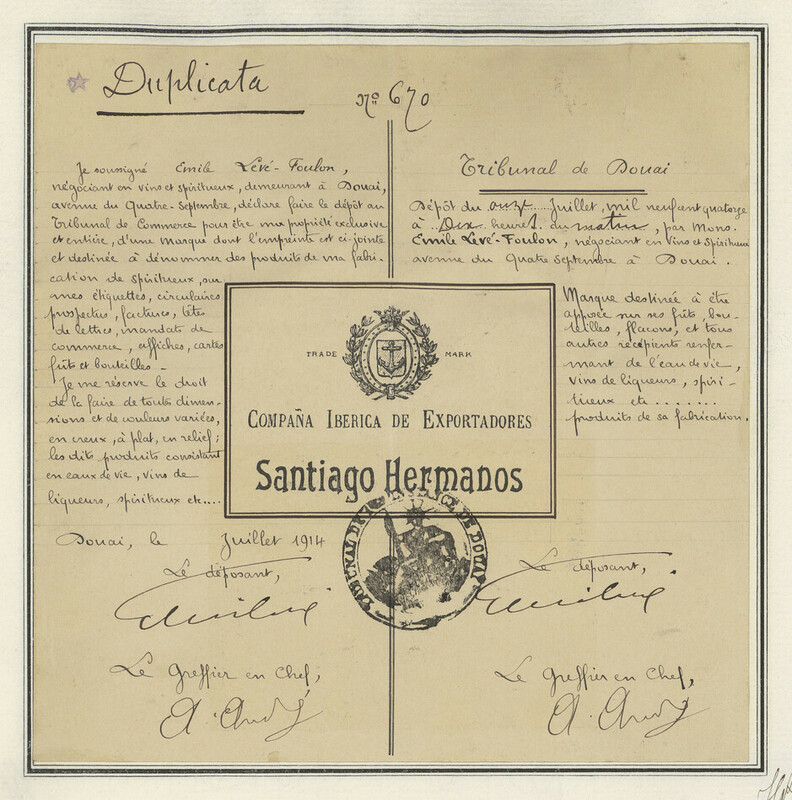 Duplicata
No 670
Je soussigné Emile Levé-Foulon,
négociant en vins et spiritueux, demeurant à Douai,
avenue du Quatre-Septembre, déclare faire le dépôt au
Tribunal de Commerce pour être ma propriété exclusive
et entière, d'une marque dont l'empreinte est ci-jointe
et destinée à dénommer des produits de ma fabri-
cation de spiritueux, sur
mes étiquettes, circulaires
prospectus, factures, têtes
de lettres, mandats de
commerce, affiches, cartes
fûts et bouteilles -
Je me réserve le droit
de la faire de toutes dimen-
sions et de couleurs variées,
en creux, à plat, en relief;
les dits produits consistant
en eaux de vie, vins de
liqueurs, spiritueux etc....
Douai, le Juillet 1914
Le déposant,
Le Greffier en Chef,
Tribunal de Douai
Dépôt du onze Juillet, mil neuf cent quatorze
à Dix heures du matin, par Mons.
Emile Levé-Foulon, négociant en vins et spiritueux
avenue du Quatre Septembre à Douai.
Marque destinée à être
apposée sur ses fûts, bou-
teilles, flacons, et tous
autres récipients renfer-
mant de l'eau de vie,
vins de liqueurs, spiri-
tueux etc........
produits de sa fabrication.
TRADE MARK
COMPAÑA IBERICA DE EXPORTADORES
Santiago Hermanos
Le déposant,
Le Greffier en Chef,